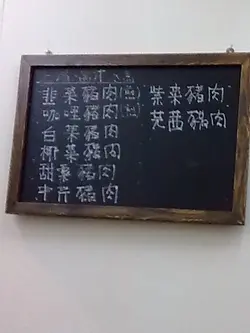 韭菜豬肉(煎)
咖哩豬肉(煎)
白菜豬肉
椰菜豬肉
甜棗豬肉
中芹豬肉
紫菜豬肉
芫茜豬肉